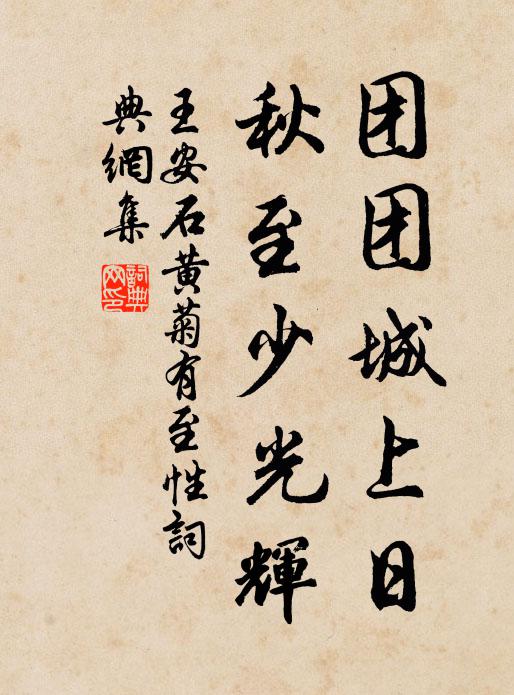 团团城上日
秋至少光輝
王安石黄菊有至性詞
典網集
詞典
网印